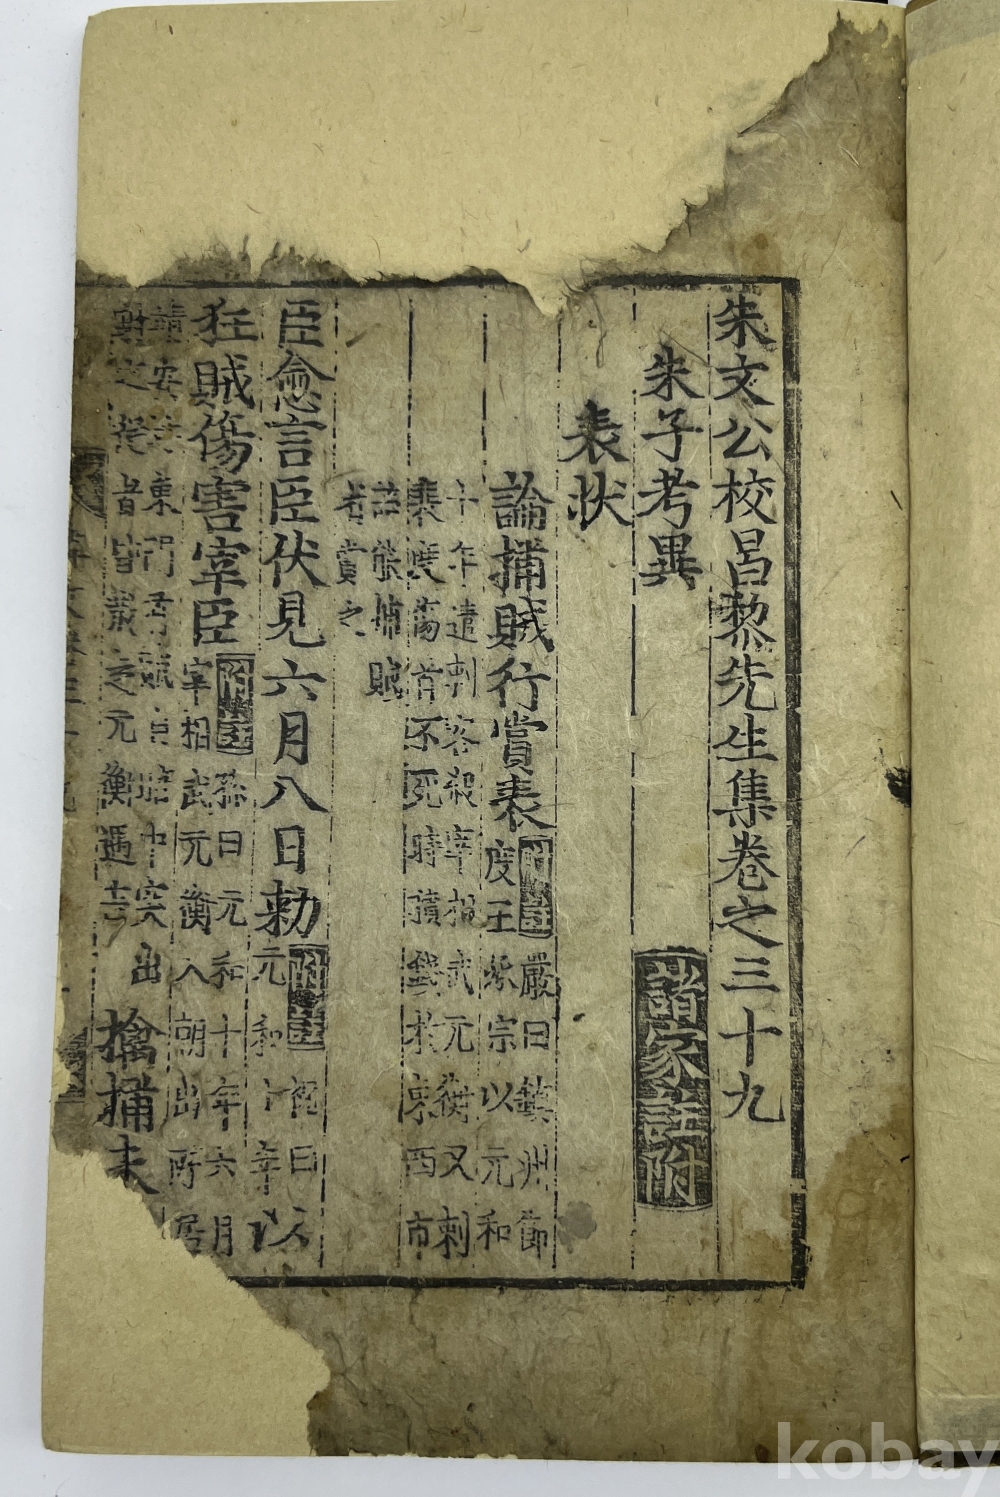 朱文公校昌黎先生集卷之三十九
朱子考異 諸家註附
表狀
論捕賊行賞表 附註 嚴曰鎮州節
度王承宗以元和
十年遣刺客殺宰相武元衡又刺
裴度傷首不死時積錢於東西市
註能捕賊
者賞之
臣愈言臣伏見六月八日勅 附註 祝曰以
元和十年以
狂賊傷害宰臣 附註 孫曰元和十年六月
宰相武元衡入朝出所居
靖安坊東門有賊自暗中突出
射之從者皆散之元衡遇害
擒捕未
kobay